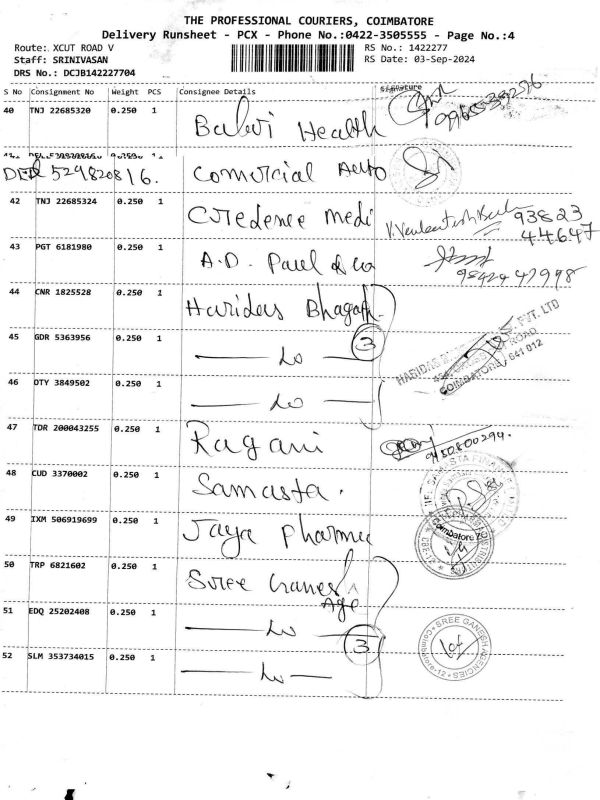 THE PROFESSIONAL COURIERS, COIMBATORE
Delivery Runsheet - PCX - Phone No.:0422-3505555 - Page No.:4
Route: XCUT ROAD V
RS No.: 1422277
Staff: SRINIVASAN
RS Date: 03-Sep-2024
DRS No.: DCJB142227704
S No Consignment No Weight PCS Consignee Details Signature
40 TNJ 22685320 0.250 1 Balvi Health
DER 529820816. Comercial Auto
42 TNJ 22685324 0.250 1 Credence Medi 93823
44647
43 PGT 6181980 0.250 1 A.D. Paul & co 9842447998
44 CNR 1825528 0.250 1 Haridas Bhagath.
45 GDR 5363956 0.250 1 — Do — 3
PVT. LTD
COIMBATORE 641 012
46 OTY 3849502 0.250 1 — Do —
47 TDR 200043255 0.250 1 Ragani
48 CUD 3370002 0.250 1 Samasta.
49 IXM 506919699 0.250 1 Jaya Pharma
Coimbatore
50 TRP 6821602 0.250 1 Sree Ganesh
Age
51 EDQ 25202408 0.250 1 — Do — 3
SREE GANESH AGENCIES
Coimbatore-12
52 SLM 353734015 0.250 1 — Do —